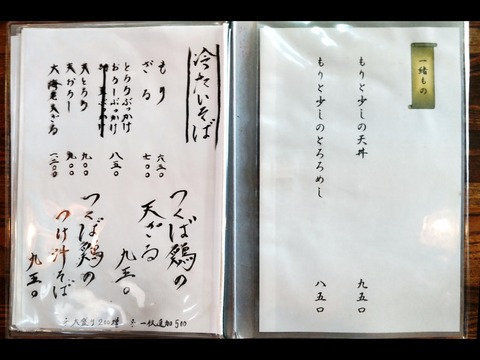 冷たいそば
もり 六五〇
ざる 七〇〇
とろろぶっかけ
おろしぶっかけ 八五〇
天とろろ 九〇〇
天おろし 九〇〇
大海老天ざる 一二〇〇
つくば鶏の
天ざる 九五〇
つくば鶏の
つけ汁そば 九五〇
大盛り200増
一枚追加500
一緒もの
もりと少しの天丼 九五〇
もりと少しのとろろめし 八五〇